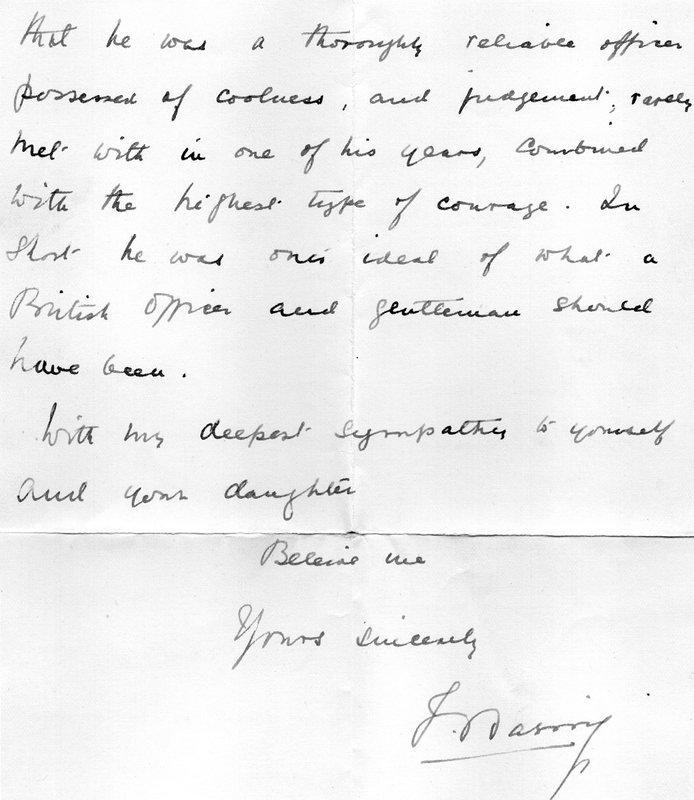 that he was a thoroughly reliable officer
possessed of coolness, and judgement, rarely
met with in one of his years, combined
with the highest type of courage. In
short he was one's ideal of what a
British Officer and gentleman should
have been.
With my deepest sympathy to yourself
and your daughter
Believe me
Yours sincerely